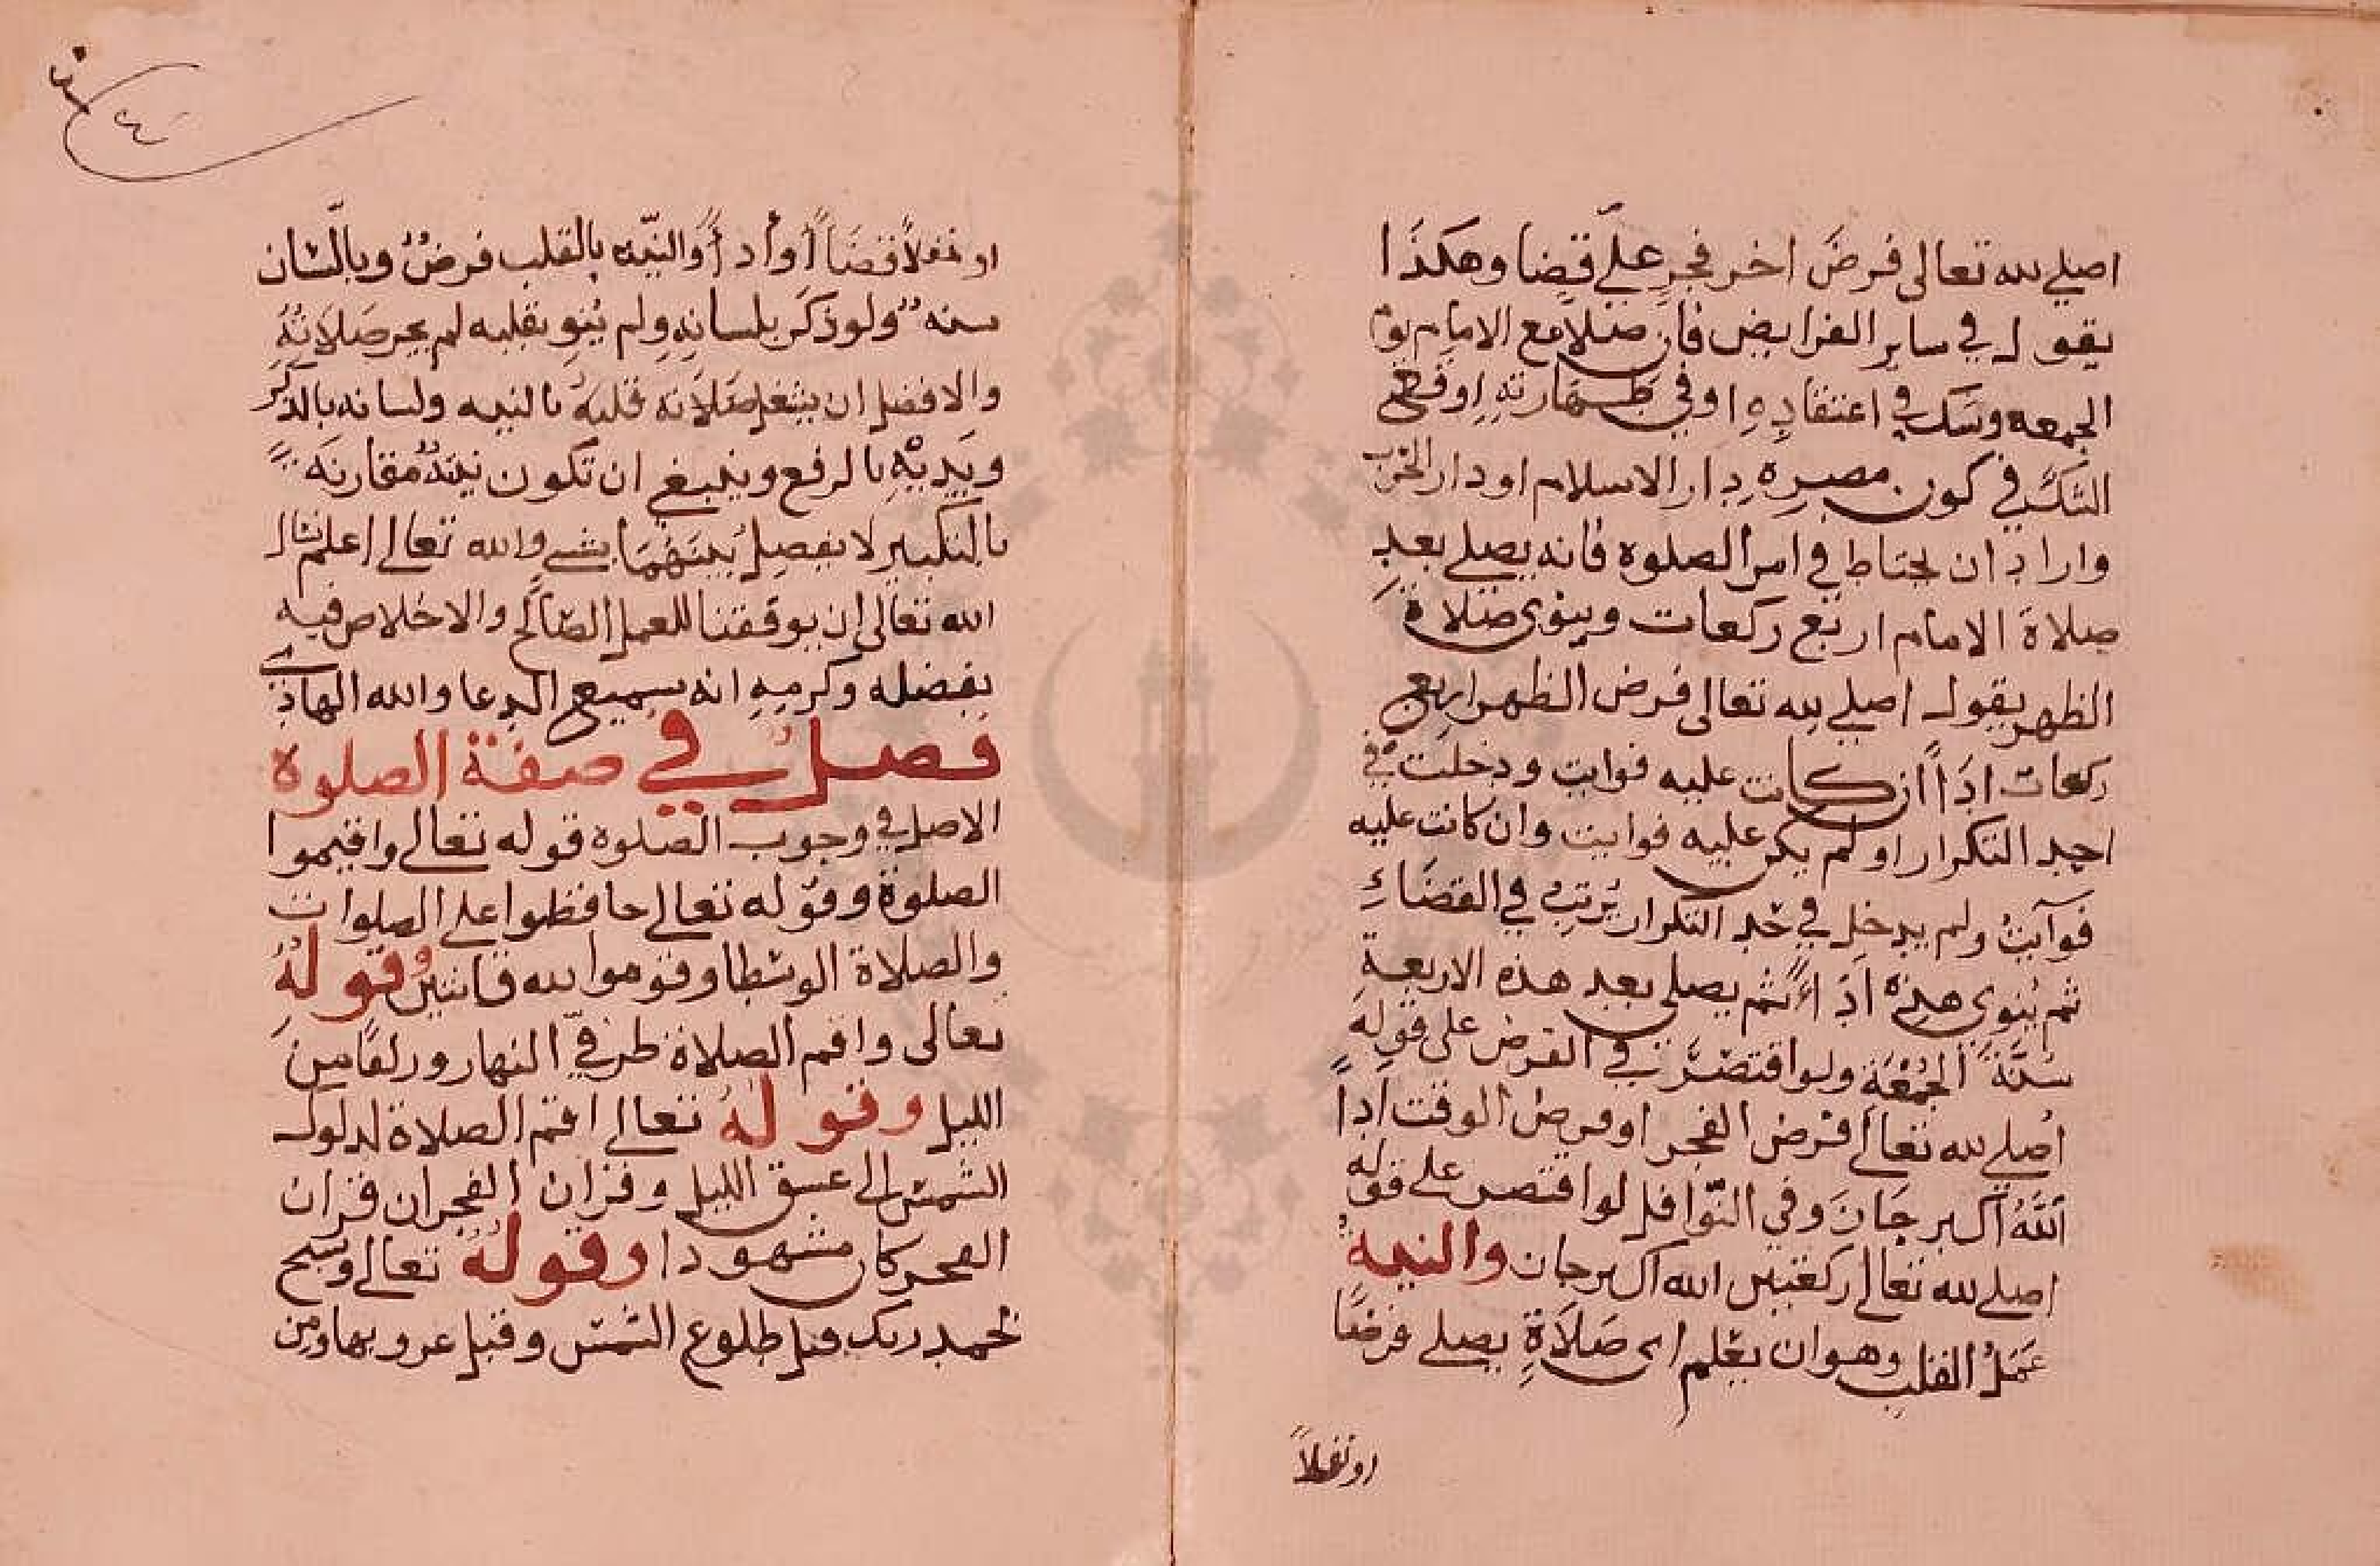 اصلي لله تعالى فرضَ اخر فجرٍ عليّ قضا وهكذَا
يقول في ساير الفرايض فان صلا مع الامام يوم
الجمعه وشك في اعتقادِهِ او في طهارتهِ او وقع
الشكُ في كون مصرِه دار الاسلام او دار الحرب
واراد ان يحتاط في امر الصلوة فانه يصلي بعد
صلاة الامام اربع ركعات وينوى صلاة
الظهر يقول اصلي لله تعالى فرض الظهر اربع
ركعات ادَاً ان كانت عليه فوايت ودخلت في
احد التكرار او لم يكن عليه فوايت وان كانت عليه
فوآيتُ ولم يدخل في حَدِ التكرار يُرتبُ في القضَاءِ
ثم يُنوي هذه ادَاءً ثم يصلي بعد هذه الاربعة
سُنّةَ الجُمُعَةِ ولو اقتصَرَ في الفرض على قولِهِ
اُصلي لله تعالى فرض الفجر او فرض الوقت اداً
اَللّهُ اكبر جَازَ وفي النّوافل لو اقتصر على قوله
اصلي لله تعالى ركعتين الله اكبر جاز والنيهُ
عَمَلُ القلب وهو ان يعْلم اى صَلَاةٍ يصلي فرضًا
او نفلاً
او نفلاً قضَاً أو أداً والنيّه بالقلب فرضٌ وبالّلسان
سنهٌ ولو ذكَر بلسانِهِ ولم يُنوِ بقلبه لم يجز صَلَاتهُ
والافضل ان يشغل صَلَاته قلبهُ بالنيه ولسانه بالذكر
ويَديْهِ بالرفع وينبغي ان تكون نيتهُ مقارنَةً
بالتكبير لا يفصِلُ بينَهُمَا بشيء والله تعالى اعلم نسال
الله تعالى ان يوفقنا للعمل الصّالح والاخلاص فيه
بفضله وكرمِهِ انه سميع الدعا والله الهادي
فصل في صفة الصلوة
الاصل في وجوب الصلوة قوله تعالى واقيموا
الصلوة وقوله تعالى حافظوا على الصلوات
والصلاة الوسْطا وقوموا لله قانتين وقولهُ
تعالى واقم الصلاة طرفيّ النهار وزلفًا منَ
الليل وقولهُ تعالى اقم الصلاة لدلوك
الشمس الى غسق الليل وقران الفجر ان قران
الفجر كان مشهودا وقولهُ تعالى وسبح
بحمد ربك قبل طلوع الشمس وقبل غروبها ومن